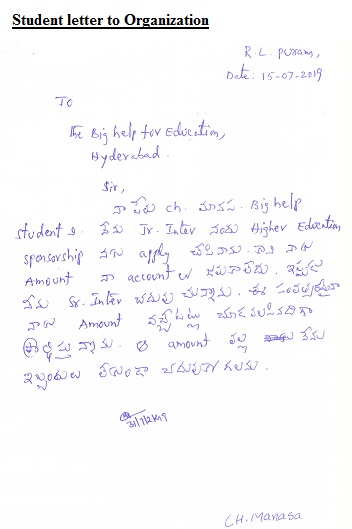 Student letter to Organization
R. L. puram,
Date: 15-07-2019
To
The Big help for Education,
Hyderabad.
Sir,
నా పేరు ch. మానస. Big help
student ని. నేను Jr. Inter నందు Higher Education
sponsorship నకు apply చేసినాను. కాని నాకు
Amount నా account లో జమకాలేదు. ఇప్పుడు
నేను Sr. Inter చదువు చున్నాను. ఈ సంవత్సరమైనా
నాకు Amount వచ్చేటట్లు చూడవలసినదిగా
ప్రార్థిస్తున్నాను. ఆ amount వల్ల నేను
ఇబ్బందులు లేకుండా చదువుకోగలను.
31/7/2019
CH. Manasa